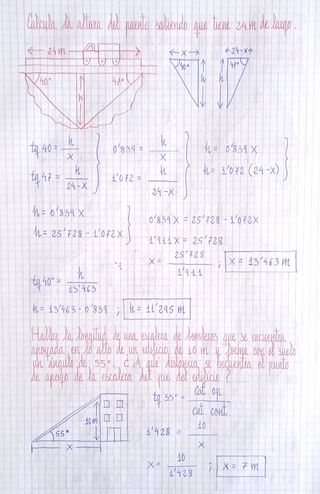 Calcula la altura del puente sabiendo que tiene 24 m de largo.
24 m
40° h 47°
x 24-x
40° h h 47°
tg 40 = h/x
tg 47 = h/24-x
0'839 = h/x
1'072 = h/24-x
h = 0'839 x
h = 1'072 (24-x)
h = 0'839 x
h = 25'728 - 1'072x
0'839 x = 25'728 - 1'072x
1'911 x = 25'728
x = 25'728/1'911 ; x = 13'463 m
tg 40° = h/13'463
h = 13'463 · 0'839 ; h = 11'295 m
Hallar la longitud de una escalera de bomberos que se encuentra
apoyada en lo alto de un edificio de 10 m y forma con el suelo
un ángulo de 55°. ¿A qué distancia se encuentra el punto
de apoyo de la escalera del pie del edificio?
10 m
55°
x
tg 55° = cat op/cat cont
1'428 = 10/x
x = 10/1'428 ; x = 7 m